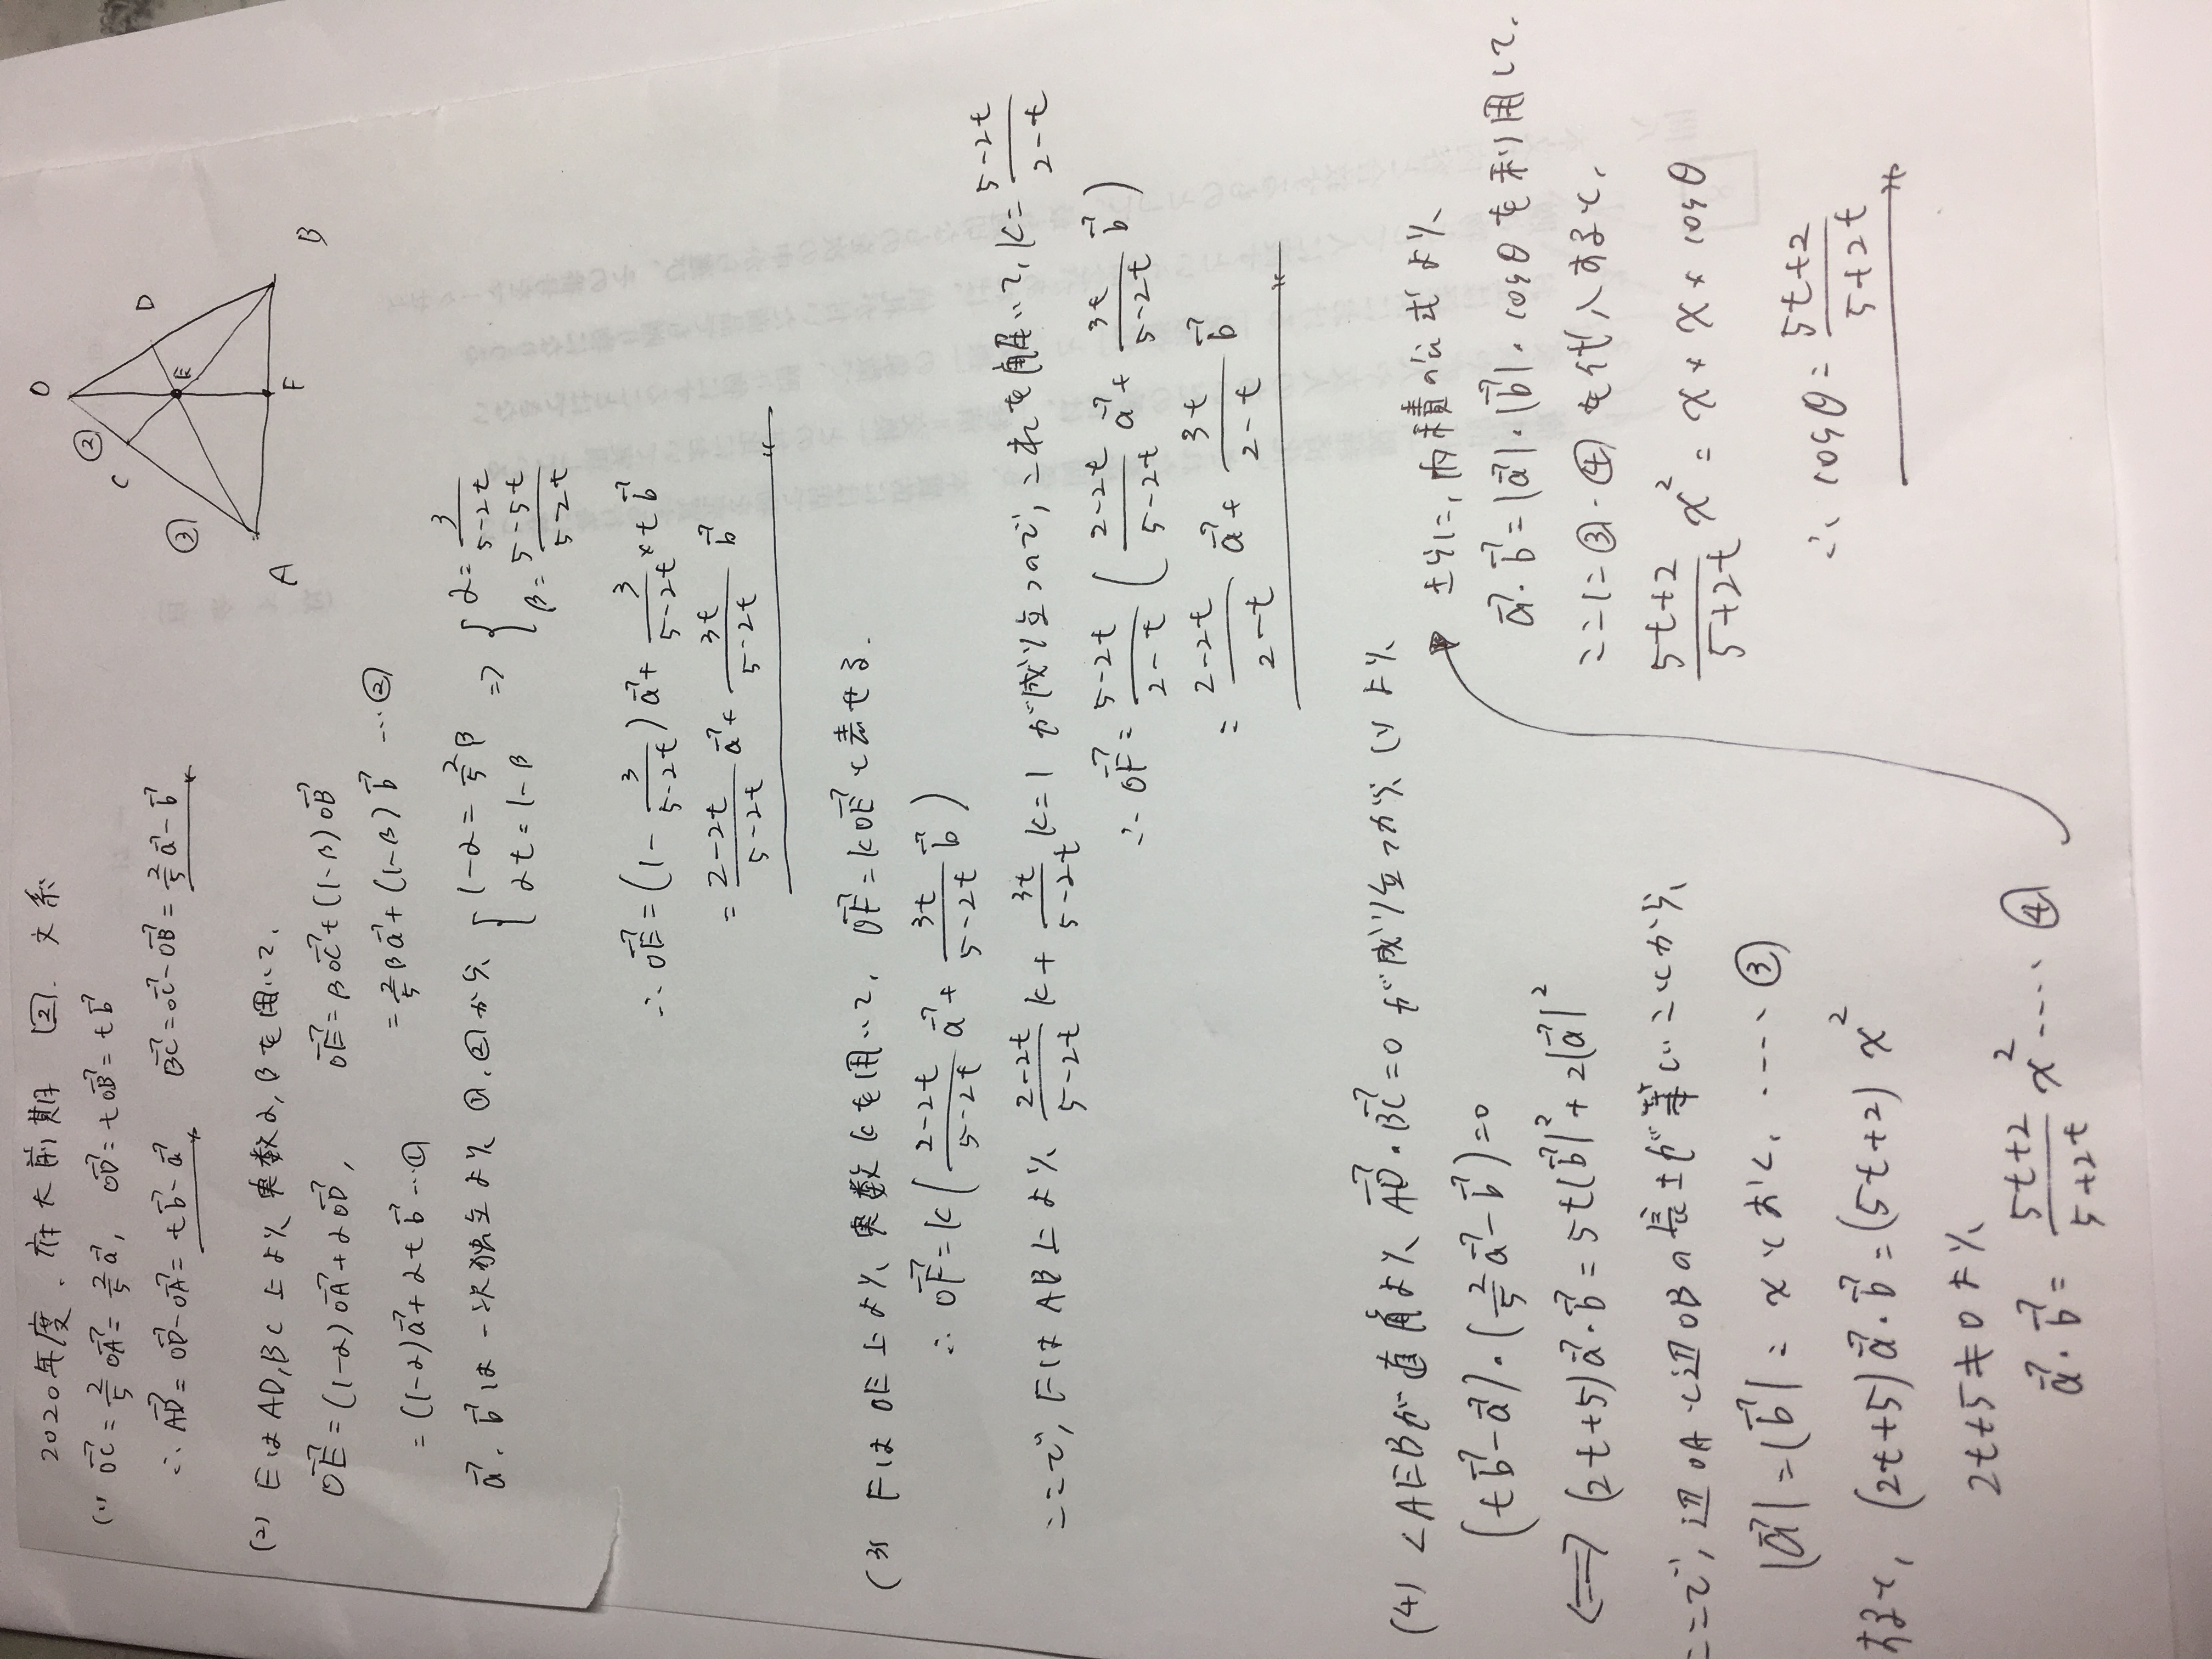 2020年度. 府大前期 2. 文系
O
②
C
D
③
E
A
F
B
(1) OC→ = 2/5 OA→ = 2/5 a→, OD→ = tOB→ = tb→
∴ AD→ = OD→ - OA→ = tb→ - a→ BC→ = OC→ - OB→ = 2/5 a→ - b→
(2) EはAD,BC上より実数α,βを用いて.
OE→ = (1-α)OA→ + αOD→, OE→ = βOC→ + (1-β)OB→
= (1-α)a→ + αtb→ …① = 2/5 βa→ + (1-β)b→ …②
a→, b→は一次独立より①,②から { 1-α = 2/5 β αt = 1-β ⇒ { α = 3/(5-2t) β = (5-5t)/(5-2t)
∴ OE→ = (1 - 3/(5-2t))a→ + 3/(5-2t) × tb→
= (2-2t)/(5-2t) a→ + 3t/(5-2t) b→
(3) FはOE上より実数kを用いて. OF→ = kOE→と表せる.
∴ OF→ = k( (2-2t)/(5-2t) a→ + 3t/(5-2t) b→ )
ここで, FはAB上より (2-2t)/(5-2t) k + 3t/(5-2t) k = 1 が成り立つので, これを解いて, k = (5-2t)/(2-t)
∴ OF→ = (5-2t)/(2-t) ( (2-2t)/(5-2t) a→ + 3t/(5-2t) b→ )
= (2-2t)/(2-t) a→ + 3t/(2-t) b→
(4) ∠AEBが直角より AD→・BC→ = 0 が成り立つから (1)より
(tb→ - a→)・(2/5 a→ - b→) = 0
⇔ (2t+5)a→・b→ = 5t|b→|² + 2|a→|²
ここで, 辺OAと辺OBの長さが等しいことから
|a→| = |b→| = x とおく. …③
すると, (2t+5)a→・b→ = (5t+2)x²
2t+5≠0より
a→・b→ = (5t+2)/(5+2t) x² …④
さらに, 内積の公式より
a→・b→ = |a→|・|b→|・cosθ を利用して.
ここに③・④を代入すると,
(5t+2)/(5+2t) x² = x × x × cosθ
∴ cosθ = (5t+2)/(5+2t)